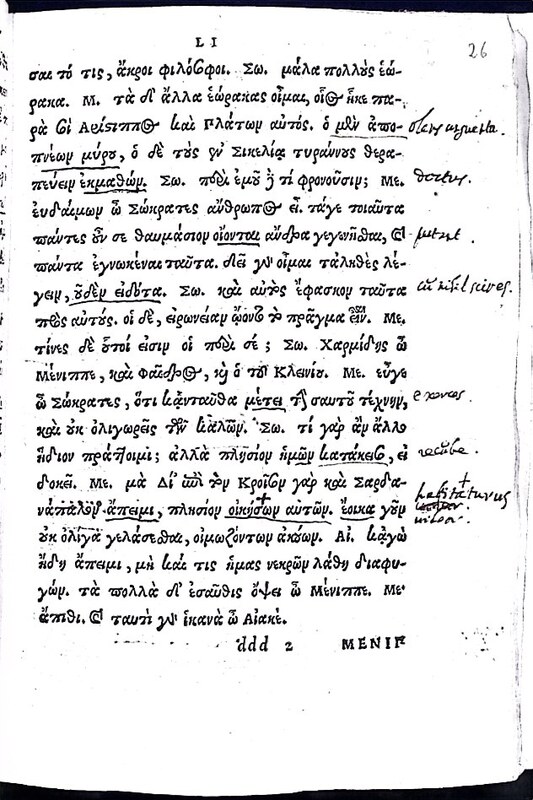 LI
26
σαι τό τις, ἄκροι φιλόσοφοι. Σω. μάλα πολλοὺς ἑώ-
ρακα. Μ. τὰ δ' ἄλλα ἑώρακας οἶμαι, οἷος ἧκε πα-
ρὰ σοὶ Αρίστιππος καὶ Πλάτων αὐτός. ὁ μὲν ἀπο-
πνέων μύρου, ὁ δὲ τοὺς ἐν Σικελίᾳ τυράννους θερα-
πεύειν ἐκμαθών. Σω. περὶ ἐμοῦ δὲ τί φρονοῦσιν; Με. doctus.
εὐδαίμων ὦ Σώκρατες ἄνθρωπος εἶ. τάγε τοιαῦτα
πάντες οὖν σε θαυμάσιον οἴονται ἄνδρα γεγενῆσθαι, καὶ putant.
πάντα ἐγνωκέναι ταῦτα. δεῖ γὰρ οἶμαι τἀληθὲς λέ-
γειν, οὐδὲν εἰδότα. Σω. καὶ αὐτὸς ἔφασκον ταῦτα
πρὸς αὐτούς. οἱ δὲ, εἰρωνείαν ᾤοντο τὸ πρᾶγμα εἶναι. Με.
τίνες δὲ οὗτοί εἰσιν οἱ περὶ σέ; Σω. Χαρμίδης ὦ
Μένιππε, καὶ Φαῖδρος, καὶ ὁ τοῦ Κλεινίου. Με. εὖγε
ὦ Σώκρατες, ὅτι κἀνταῦθα μέτει τὴν σαυτοῦ τέχνην,
καὶ οὐκ ὀλιγωρεῖς τῶν καλῶν. Σω. τί γὰρ ἂν ἄλλο
ἥδιον πράττοιμι; ἀλλὰ πλησίον ἡμῶν κατάκεισο, εἰ
δοκεῖ. Με. μὰ Δί' ἐπὶ τὸν Κροῖσον γὰρ καὶ Σαρδα-
νάπαλον ἄπειμι, πλησίον οἰκήσων αὐτῶν. ἔοικα γοῦν habitaturus
οὐκ ὀλίγα γελάσεσθαι, οἰμωζόντων ἀκούων. Αἰ. κἀγὼ
ἤδη ἄπειμι, μὴ καί τις ἡμᾶς νεκρῶν λάθῃ διαφυ-
γών. τὰ πολλὰ δ' ἐσαῦθις ὄψει ὦ Μένιππε. Με.
ἄπιθι. καὶ ταυτὶ γὰρ ἱκανὰ ὦ Αἰακέ.
ddd 2 ΜΕΝΙΠ